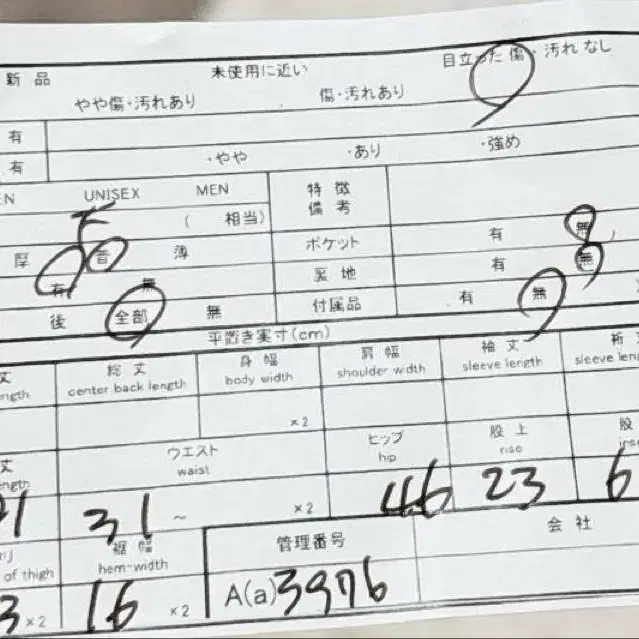 新品 未使用に近い 目立った傷・汚れなし
やや傷・汚れあり 傷・汚れあり
有
有 ・やや ・あり ・強め
EN UNISEX MEN 特徴備考
F ( 相当)
厚 普 薄 ポケット 有 無
有 無 裏地 有 無
後 全部 無 付属品 有 無
平置き実寸(cm)
丈 総丈 身幅 肩幅 袖丈 裄
ngth center back length body width shoulder width sleeve length sleeve leng
×2
丈 ウエスト ヒップ 股上 股
ngth waist hip rise
1 31 ~ ×2 46 23 6
裾幅 管理番号 会社
of thigh hem-width
3 ×2 16 ×2 A(a)3976